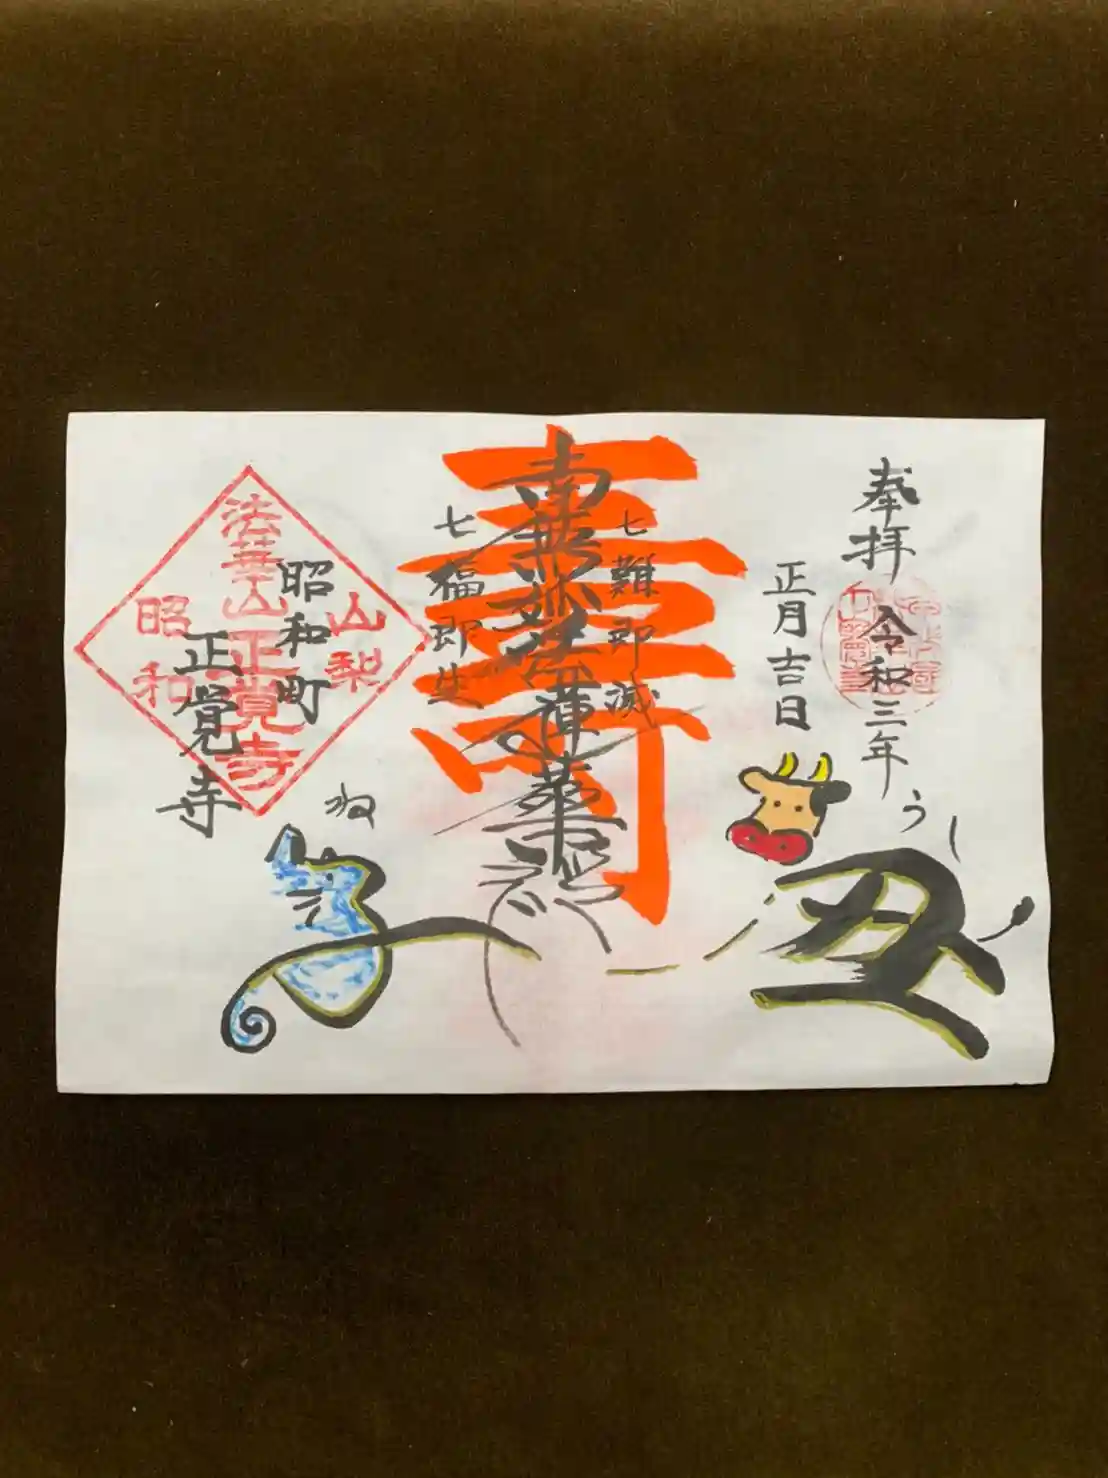 奉拝
令和三年
正月吉日
うし
七難即滅
壽
南無妙法蓮華経
七福即生
ね
山梨
昭和町
法華山正覚寺
正覚寺
昭和